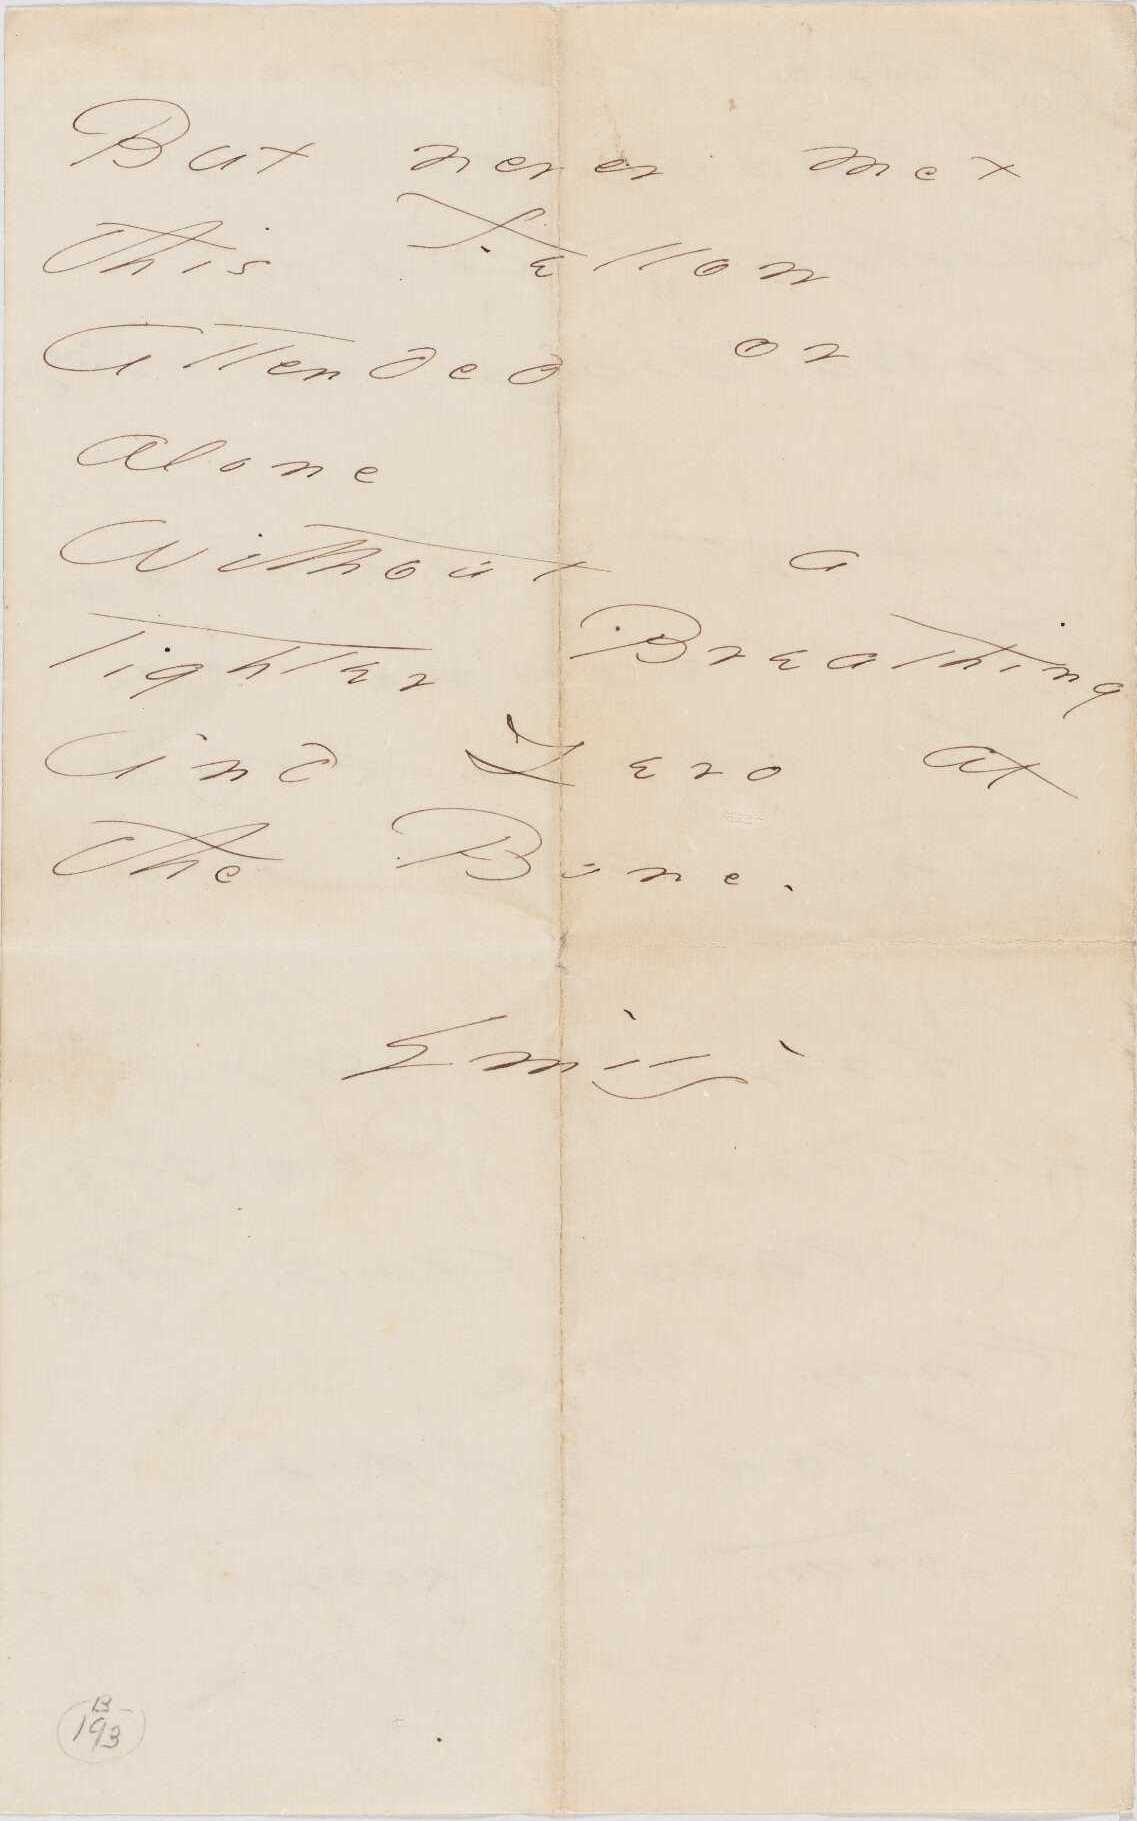 But never met
this Fellow
Attended or
alone
Without a
tighter Breathing
And Zero at
the Bone.
Emily
B
193